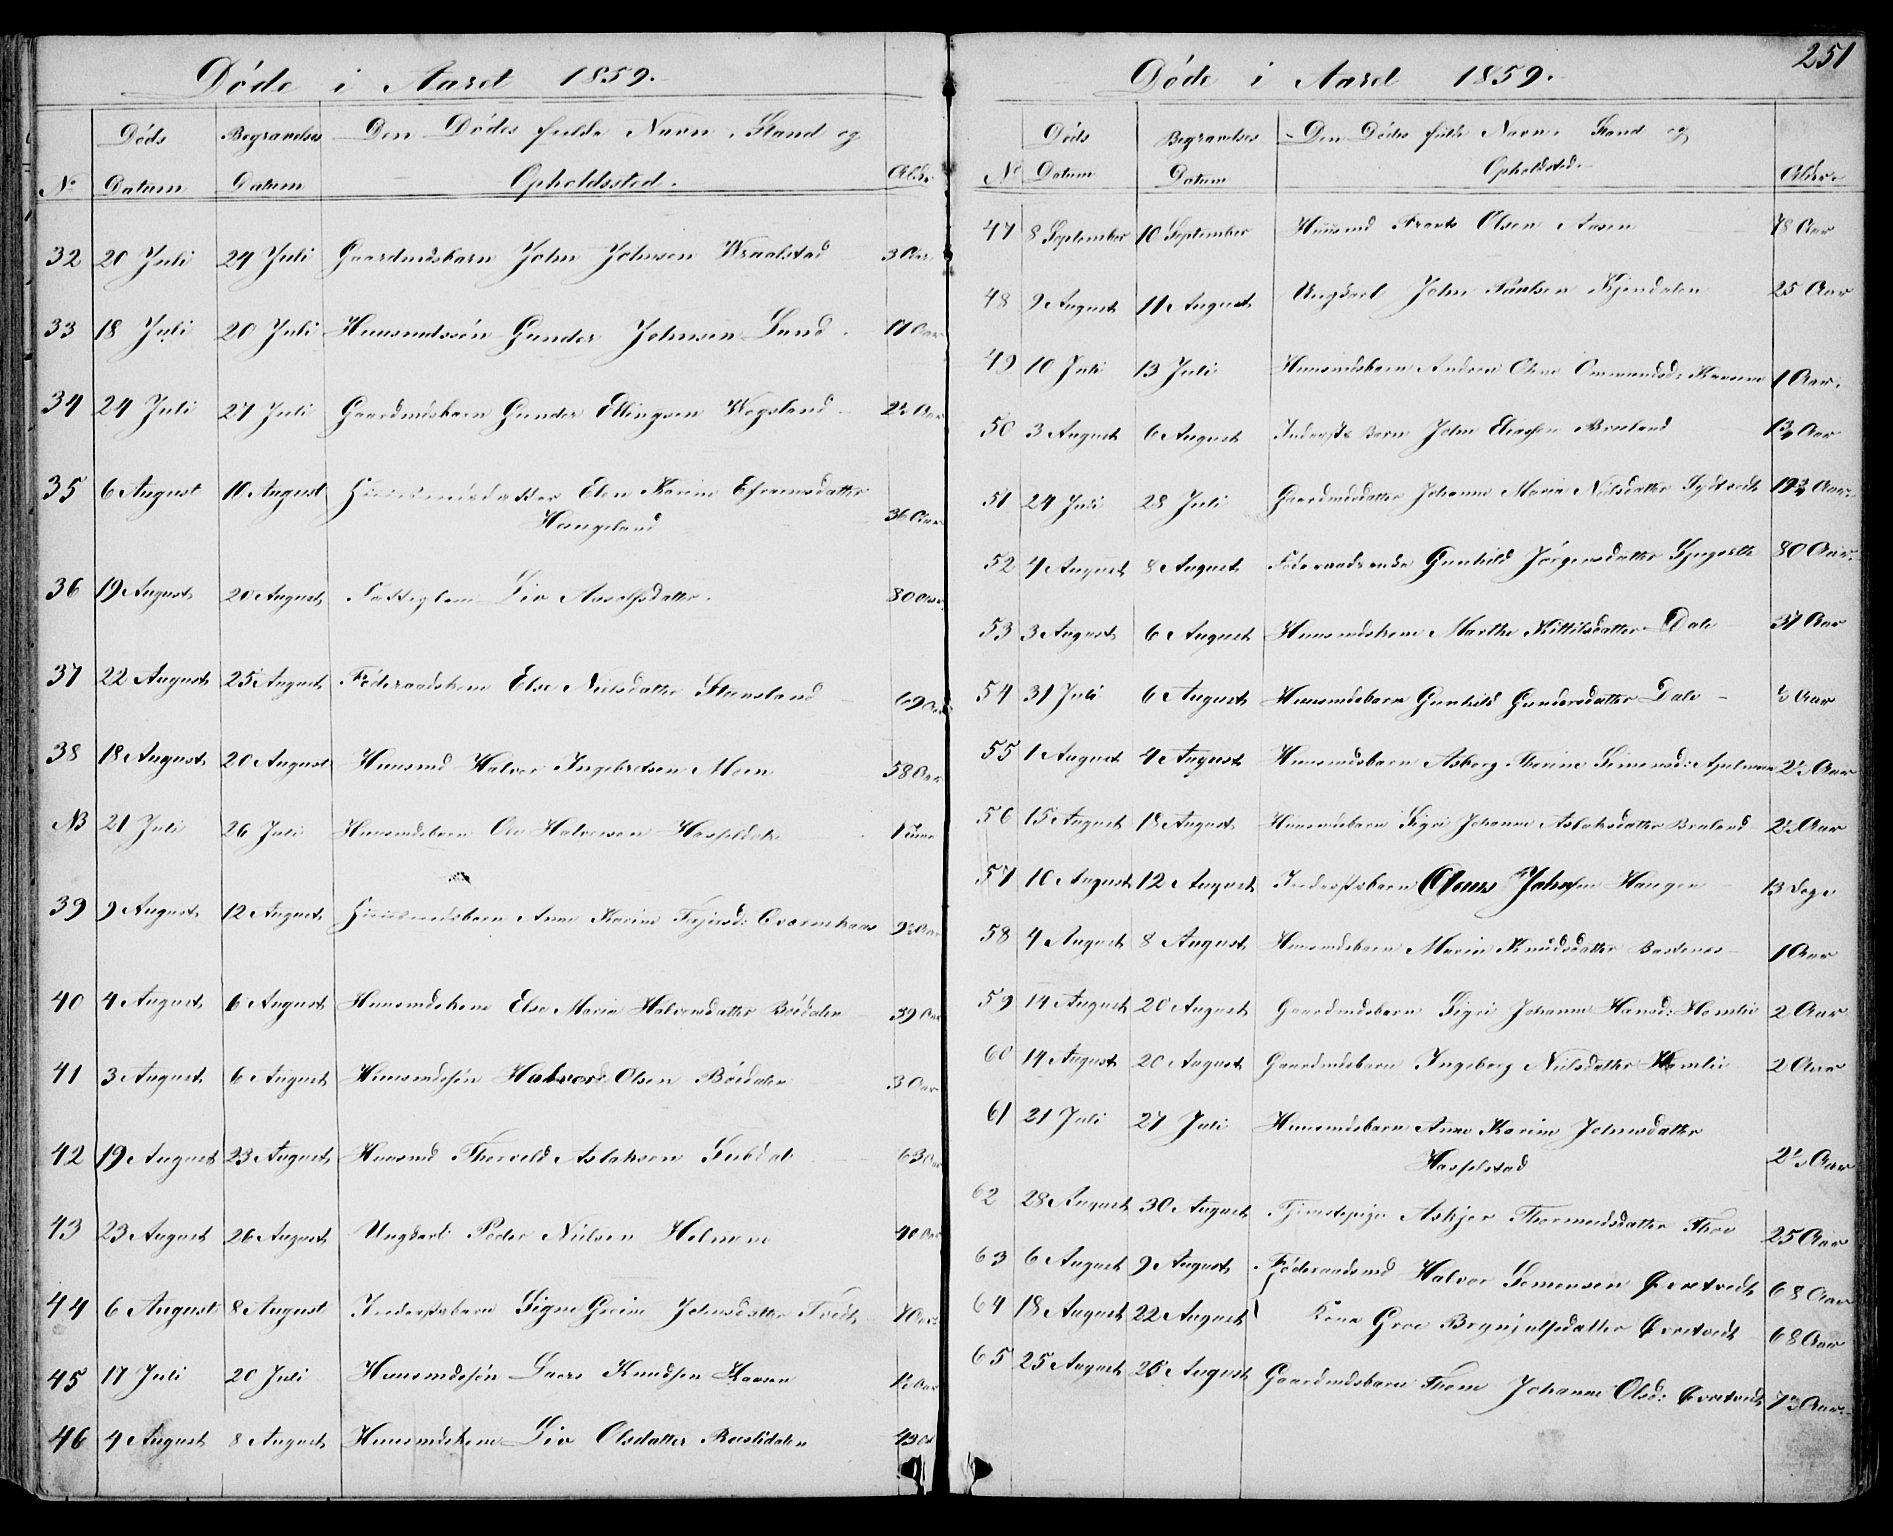 Døde i Aaret 1859.
No Døds Datum Begravelses Datum Den Dødes fulde Navn, Stand og Opholdssted. Alder
32 20 Juli 24 Juli Gaardmdsbarn John Johnsen Wraalstad 3 Aar
33 18 Juli 20 Juli Huusmdssøn Gunder Johnsen Lund. 17 Aar
34 24 Juli 27 Juli Gaardmdsbarn Gunder Ellingsen Wegsland 2½ Aar
35 6 August 10 August Huusmdsdatter Elen Karine Eframsdatter
Haugeland 36 Aar
36 19 August 20 August Fattiglem Liv Aasolfsdatter. 80 Aar
37 22 August 25 August Föderaadskone Else Nielsdatter Steensland 69 Aar
38 18 August 20 August Huusmd Halvor Ingebretsen Moen 58 Aar
NB 21 Juli 26 Juli Huusmdsbarn Ole Halvorsen Hasseldale 1 Time
39 9 August 12 August Huusmdsbarn Anne Karine Terjesd: 9½ Aar
40 4 August 6 August Huusmdskone Else Marie Halvorsdatter Böidalen 39 Aar
41 3 August 6 August Huusmdssön Halvord Olsen Böidalen 3 Aar
42 19 August 23 August Huusmd Thorvald Aslaksen 63 Aar
43 23 August 26 August Ungkarl Peder Nielsen 40 Aar
44 6 August 8 August Inderstsbarn Signe Grine Johnsdatter Tvedt
45 17 Juli 20 Juli Huusmdssön Lars Knudsen Haven
46 4 August 8 August Huusmdskone Liv Olsdatter 43 Aar
251
Døde i Aaret 1859.
No Døds Datum Begravelses Datum Den Dødes fulde Navn, Stand og Opholdsted. Alder.
47 8 September 10 September Huusmd Frants Olsen Aasen 78 Aar
48 9 August 11 August Ungkarl John Paulsen Kjendalen 25 Aar
49 10 Juli 13 Juli Huusmdsbarn Andrea Oline 1 Aar.
50 3 August 6 August Inderste Barn John Eliassen Breland 1¾ Aar
51 24 Juli 28 Juli Gaardmdsdatter Johanne Maria Nielsdatter Sydtvedt 19¾ Aar
52 4 August 8 August Föderaadsenke Gunhild Jörgensdatter 80 Aar.
53 3 August 6 August Huusmdskone Marthe Kittilsdatter Dale 37 Aar
54 31 Juli 6 August Huusmdsbarn Gunhild Gundersdatter Dale Aar
55 1 August 4 August Huusmdsbarn Asborg Thorine Simonsd: 2½ Aar
56 15 August 18 August Huusmdsbarn Sigri Johanne Aslaksdatter Breland 2½ Aar
57 10 August 12 August Inderstsbarn Olaus Johnsen Haugen 13 Dage
58 4 August 8 August Huusmdsbarn Marie Knudsdatter Bastenes 1 Aar
59 14 August 20 August Gaardmdsbarn Sigri Johanne Hansd: Hemlie 2 Aar
60 14 August 20 August Gaardmdsbarn Ingeborg Nielsdatter Hemlie 2 Aar
61 21 Juli 27 Juli Huusmdsbarn Anne Karine Johnsdatter
Hasselstad 2½ Aar
62 28 August 30 August Tjenestepige Askjer Thormodsdatter Thov 25 Aar
63 6 August 9 August Föderaadsmd Halvor Simonsen Östretvedt 68 Aar
64 18 August 22 August Kone Groe Brynjulfsdatter Östretvedt 68 Aar
65 25 August 26 August Gaardmdsbarn Thone Johanne Olsd: Östretvedt